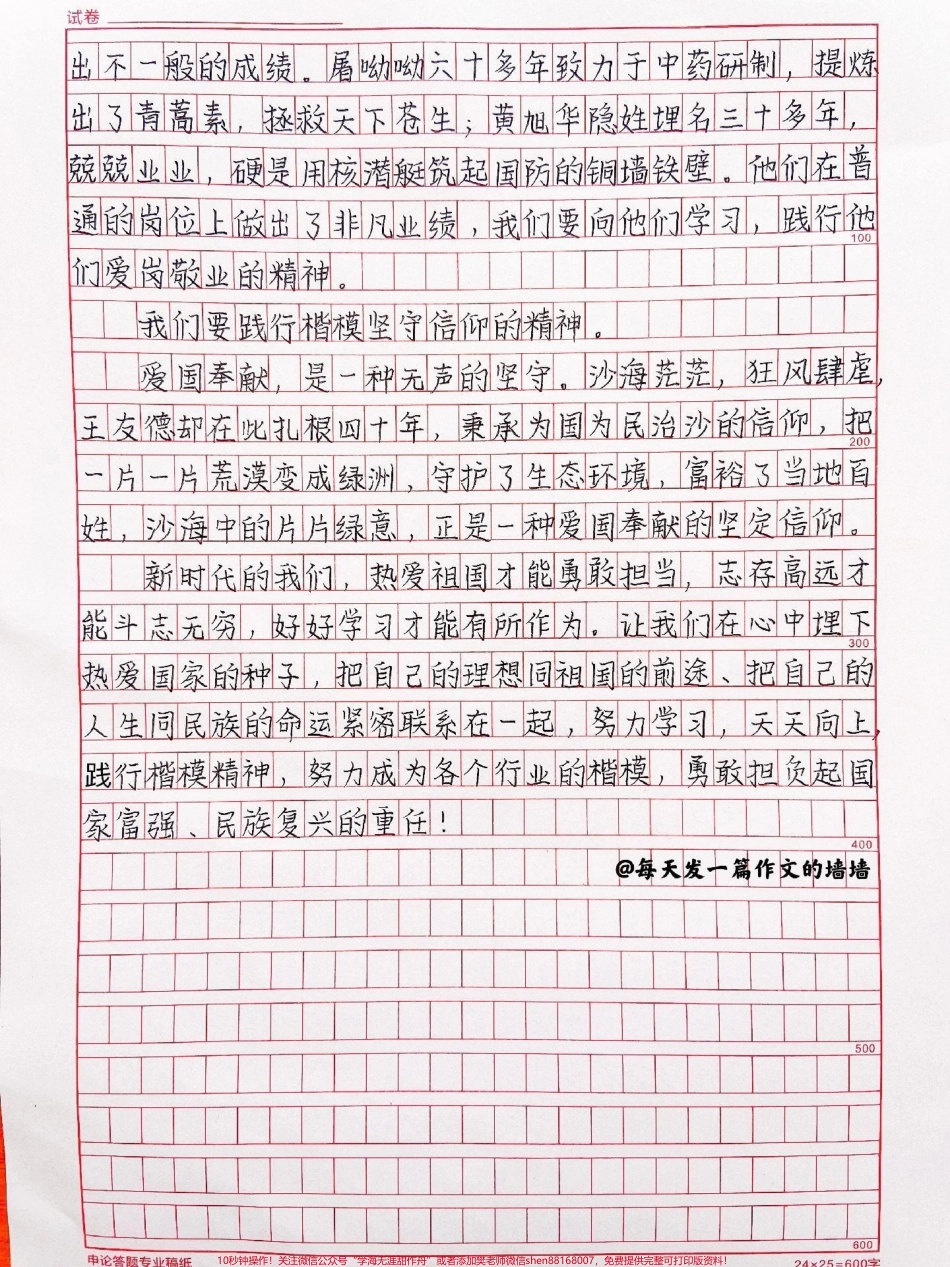 试卷
出不一般的成绩。屠呦呦六十多年致力于中药研制，提炼
出了青蒿素，拯救天下苍生；黄旭华隐姓埋名三十多年，
兢兢业业，硬是用核潜艇筑起国防的铜墙铁壁。他们在普
通的岗位上做出了非凡业绩，我们要向他们学习，践行他
100
们爱岗敬业的精神。
我们要践行楷模坚守信仰的精神。
爱国奉献，是一种无声的坚守。沙海茫茫，狂风肆虐，
王友德却在此扎根四十年，秉承为国为民治沙的信仰，把
200
一片一片荒漠变成绿洲，守护了生态环境，富裕了当地百
姓，沙海中的片片绿意，正是一种爱国奉献的坚定信仰。
新时代的我们，热爱祖国才能勇敢担当，志存高远才
能斗志无穷，好好学习才能有所作为。让我们在心中埋下
300
热爱国家的种子，把自己的理想同祖国的前途、把自己的
人生同民族的命运紧密联系在一起，努力学习，天天向上，
践行楷模精神，努力成为各个行业的楷模，勇敢担负起国
家富强、民族复兴的重任！
400
@每天发一篇作文的墙墙
500
600
申论答题专业稿纸 10秒钟操作！关注微信公众号“学海无涯甜作舟”或者添加樊老师微信shen88168007，免费提供完整可打印版资料！ 24×25=600字